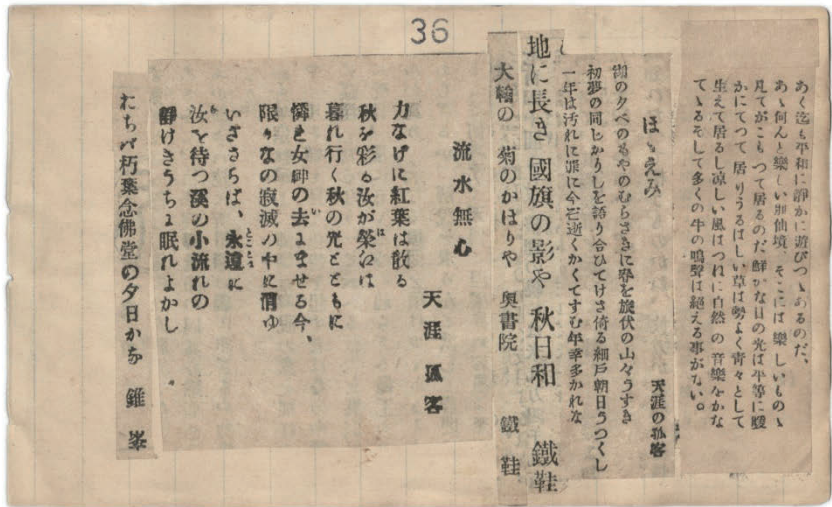 36
あく迄も平和に靜かに遊びつゝあるのだ、
あゝ何んと樂しい神仙境、そこには樂しいものゝ
見てがこもつて居るのだ鮮かな日の光は平等に暖
かにてつて居りうるはしい草は勢よく青々として
生えて居るし凉しい風はつれに自然の音樂をかな
てゝるそして多くの牛の鳴聲は絶える事がない。
ほゝえみ
天涯の孤客
湖の夕べのもやのむらさきに
を旋伏の山々うすき
初夢の同じかりしを語り合ひてけさ倚る細戸朝日うつくし
一年は汚れに罪に今逝くかくてすむ年幸多かれな
地に長き國旗の影や秋日和 鐵鞋
大輪の菊のかはりや奥書院 鐵鞋
流水無心
天涯孤客
力なげに紅葉は散る
秋を彩る汝が榮は
暮れ行く秋の光とともに
憐き女神の去りませる今、
限りなの寂滅の中に消ゆ
いざさらば、永遠に
汝を待つ溪の小流れの
靜けきうちに眠れよかし。
わちば朽葉念佛堂の夕日かな 錐峯